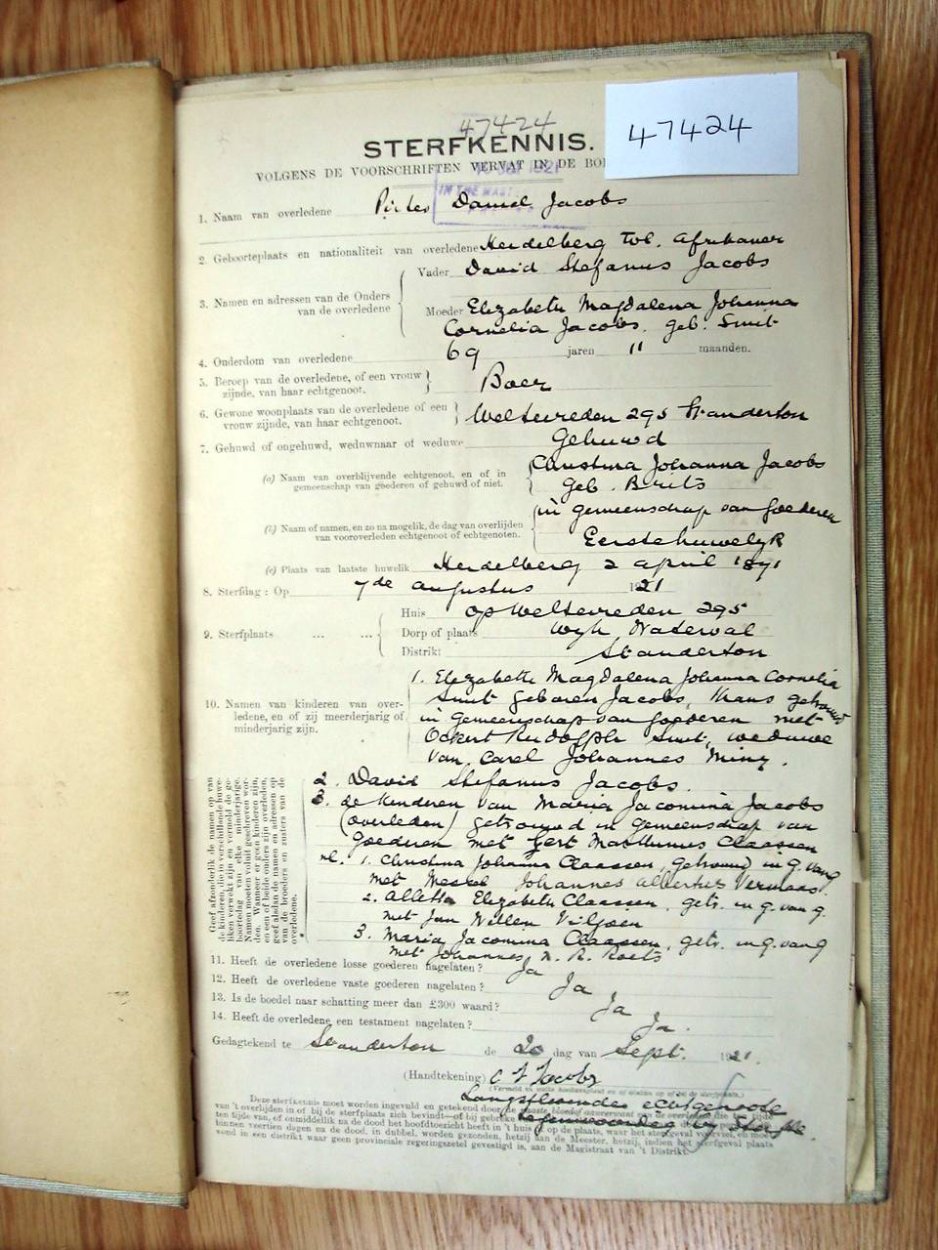 47424
47424
STERFKENNIS.
VOLGENS DE VOORSCHRIFTEN VERVAT IN DE
IN THE
1. Naam van overledene Pieter Daniel Jacobs
2. Geboorteplaats en nationaliteit van overledene Heidelberg Tvl. Afrikaner
3. Namen en adressen van de Ouders van de overledene
Vader David Stefanus Jacobs
Moeder Elizabeth Magdalena Johanna
Cornelia Jacobs. geb. Smit
4. Onderdom van overledene 69 jaren 11 maanden.
5. Beroep van de overledene, of een vrouw
zijnde, van haar echtgenoot. Boer
6. Gewone woonplaats van de overledene of een
vrouw zijnde, van haar echtgenoot. Weltevreden 295 Standerton
7. Gehuwd of ongehuwd, weduwnaar of weduwe Gehuwd
(a) Naam van overblijvende echtgenoot, en of in
gemeenschap van goederen of gehuwd of niet.
Christina Johanna Jacobs
geb. Brits
in gemeenschap van goederen
(b) Naam of namen, en zo na mogelik, de dag van overlijden
van vooroverleden echtgenoot of echtgenoten.
Eerste huwelyk
(c) Plaats van laatste huwelik Heidelberg 2 April 1871
8. Sterfdag: Op 7de Augustus 1921
9. Sterfplaats ... ...
Huis op Weltevreden 295
Dorp of plaats Wyk Waterval
Distrikt Standerton
10. Namen van kinderen van over-
ledene, en of zij meerderjarig of
minderjarig zijn.
1. Elizabeth Magdalena Johanna Cornelia
Smit geboren Jacobs, thans getrouwd
in gemeenschap van goederen met
Ockert Rudolph Smit, weduwe
van Carel Johannes
Geef afzonderlik de namen op van
de kinderen, die in verschillende huwe-
liken verwekt zijn en vermeld de ge-
boortedag van elke minderjarige.
Namen moeten voluit geschreven wor-
den. Wanneer er geen kinderen zijn,
en een of beide ouders zijn overleden,
geef alsdan de namen en adressen op
van de broeders en zusters van de
overledene.
2. David Stefanus Jacobs.
3. de kinderen van Maria Jacomina Jacobs
(overleden) getrouwd in gemeenschap van
goederen met Gert Marthinus Claassen
nl. 1. Christina Johanna Claassen, getrouwd in g. van g.
met Johannes Albertus Vermaas.
2. Aletta Elizabeth Claassen, getr. in g. van g.
met Jan Willem Viljoen
3. Maria Jacomina Claassen, getr. in g. van g
met Johannes N. R.
11. Heeft de overledene losse goederen nagelaten? Ja
12. Heeft de overledene vaste goederen nagelaten? Ja
13. Is de boedel naar schatting meer dan £300 waard? Ja
14. Heeft de overledene een testament nagelaten? Ja.
Gedagtekend te Standerton de 20 dag van Sept. 1921.
(Handtekening) C J Jacobs
Langstlevende echtgenoote
tegenwoordig by sterfte.
Deze sterfkennis moet worden ingevuld en getekend door de naaste
van 't overlijden in of bij de sterfplaats zich bevindt—of bij gebreke
ten tijde van, of onmiddellik na de dood het hoofdtoezicht heeft in 't huis of op de plaats, waar het sterfgeval
tonnen veertien dagen na de dood, in dubbel, worden gezonden, hetzij aan de Meester, hetzij, indien het sterfgeval plaats
vond in een distrikt waar geen provinciale regeringszetel gevestigd is, aan de Magistraat van 't Distrikt.